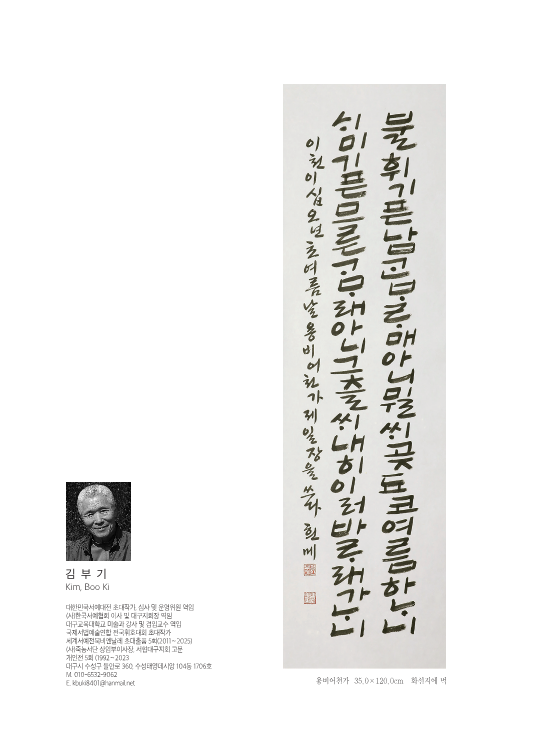 불휘기픈남ᄀᆞᆫᄇᆞᄅᆞ매아니뮐ᄊᆡ곶됴코여름하ᄂᆞ니
ᄉᆡ미기픈므른ᄀᆞᄆᆞ래아니그츨ᄊᆡ내히이러바ᄅᆞ래가ᄂᆞ니
이천이십오년초여름날용비어천가제일장을쓰다
김 부 기
Kim, Boo Ki
대한민국서예대전 초대작가, 심사 및 운영위원 역임
(사)한국서예협회 이사 및 대구지회장 역임
대구교육대학교 미술과 강사 및 겸임교수 역임
국제서법예술연합 전국휘호대회 초대작가
세계서예전북비엔날레 초대출품 5회(2011~2025)
(사)죽농서단 상임부이사장, 서협대구지회 고문
개인전 5회 (1992~2023
대구시 수성구 들안로 360, 수성태영데시앙 104동 1706호
M. 010-6532-9062
E. kbuki8401@hanmail.net
용비어천가 35.0×120.0cm 화선지에 먹